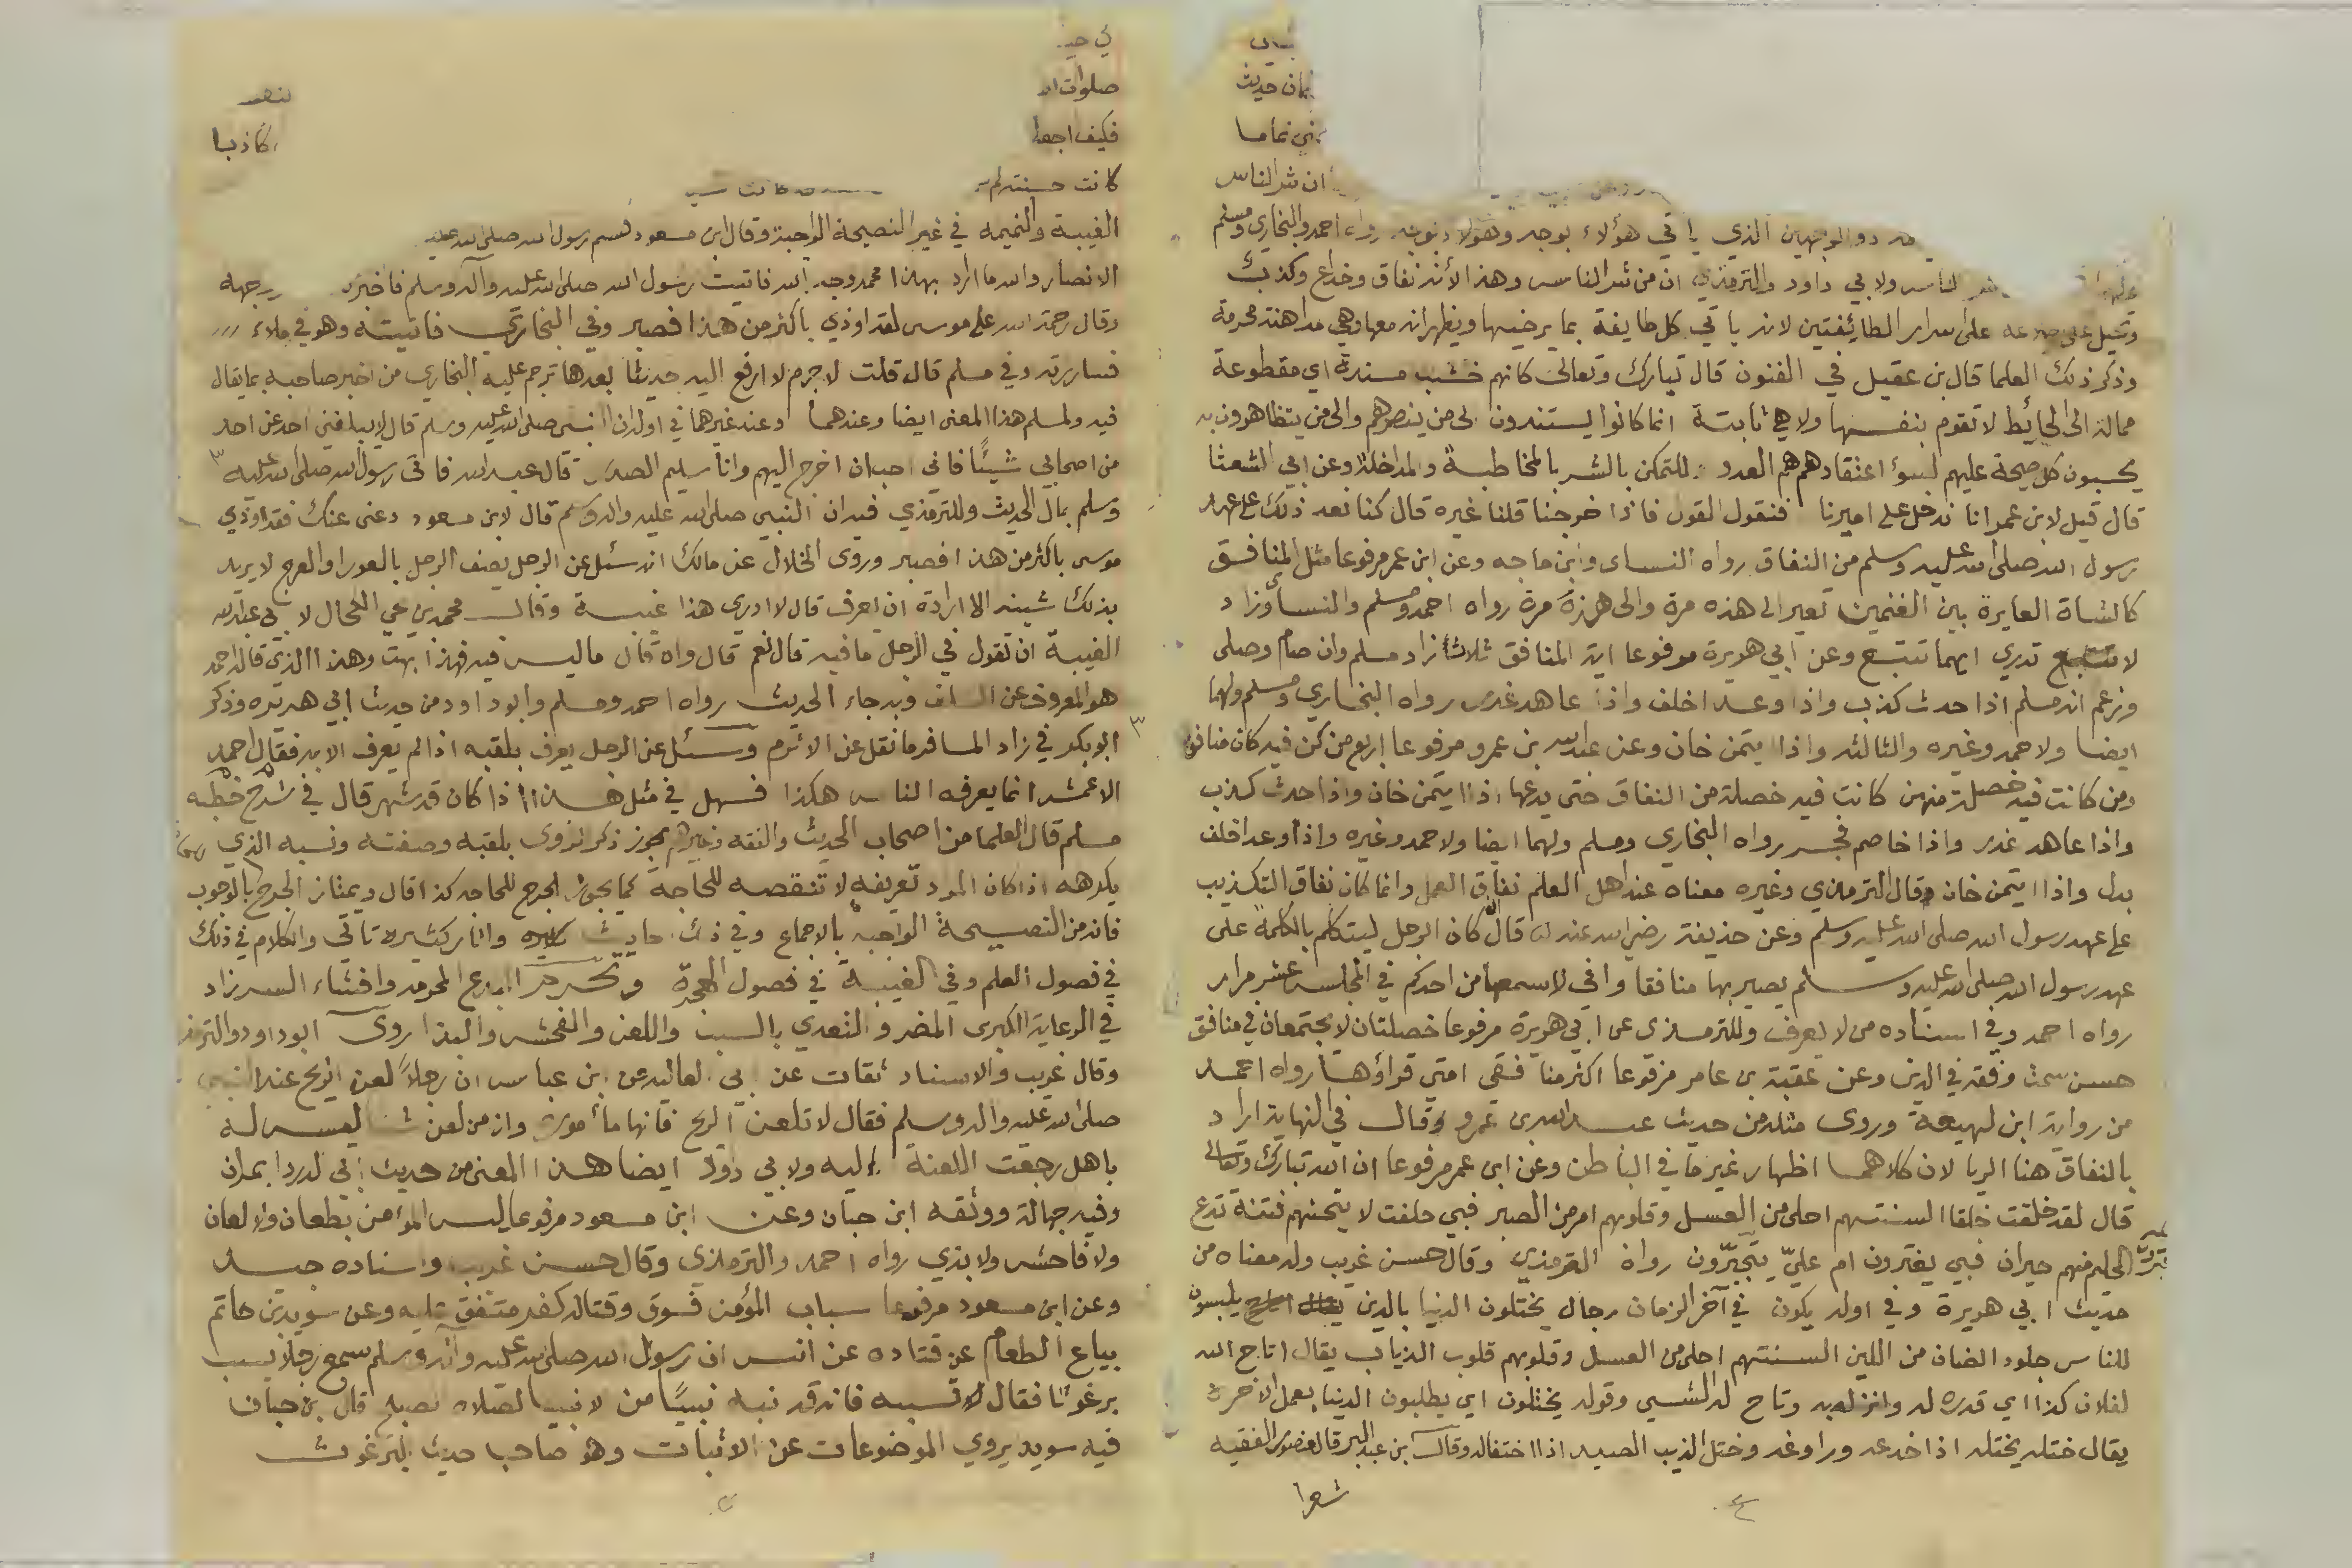 مان حديث
نماما
ان شر الناس
ذو الوجهين الذي ياتي هؤلاء بوجه وهؤلاء بوجه رواه احمد والبخاري ومسلم
الناس ولابي داود والترمذي ان من شر الناس وهذا لأنه نفاق وخداع وكذب
وتحيل على على اسرار الطائفتين لانه ياتي كل طايفة بما يرضيها ويظهر انه معها وهي مداهنة محرمة
وذكر ذلك العلما قال بن عقيل في الفنون قال تبارك وتعالى كانهم خشب مسندة اي مقطوعة
ممالة الى الحائط لا تقوم بنفسها ولا هي ثابتة انما كانوا يستندون الى من ينصرهم والى من يتظاهرون به
يحسبون كل صيحة عليهم لسوء اعتقادهم هم العدو للتمكن بالشر بالمخاطبة والمداخلة وعن ابي الشعثا
قال قيل لابن عمر انا ندخل على اميرنا فنقول القول فاذا خرجنا قلنا غيره قال كنا نعد ذلك على عهد
رسول الله صلى الله عليه وسلم من النفاق رواه النساي وابن ماجه وعن ابن عمر مرفوعا مثل المنافق
كالشاة العايرة بين الغنمين تعير الى هذه مرة والى هذه مرة رواه احمد ومسلم والنسائي وزاد
لا تدري ايهما تتبع وعن ابي هويرة مرفوعا اية المنافق ثلاثة زاد مسلم وان صام وصلى
وزعم انه مسلم اذا حدث كذب واذا وعد اخلف واذا عاهد غدر رواه البخاري ومسلم ولهما
ايضا ولاحمد وغيره والثالثه واذا ايتمن خان وعن عبدالله بن عمرو مرفوعا اربع من كن فيه كان منافقا
ومن كانت فيه خصلة منهن كانت فيه خصلة من النفاق حتى يدعها اذا ايتمن خان واذا حدث كذب
واذا عاهد غدر واذا خاصم فجر رواه البخاري ومسلم ولهما ايضا ولاحمد وغيره واذا وعد اخلف
بدل واذا ايتمن خان وقال الترمذي وغيره معناه عند اهل العلم نفاق العمل وانما كان نفاق التكذيب
على عهد رسول الله صلى الله عليه وسلم وعن حذيفة رضي الله عنه قال ان كان الرجل ليتكلم بالكلمة على
عهد رسول الله صلى الله عليه وسلم يصير بها منافقا واني لاسمعها من احدكم في المجلس عشر مرار
رواه احمد وفي اسناده من لا يعرف وللترمذي عن ابي هويرة مرفوعا خصلتان لا يجتمعان في منافق
حسن سمت وفقه في الدين وعن عقبة بن عامر مرفوعا اكثر منافقي امتي قراؤها رواه احمد
من رواية ابن لهيعة وروى مثله من حديث عبدالله بن عمرو وقال في النهاية اراد
بالنفاق هنا الريا لان كلاهما اظهار غير ما في الباطن وعن ابن عمر مرفوعا ان الله تبارك وتعالى
قال لقد خلقت خلقا السنتهم احلى من العسل وقلوبهم امر من الصبر فبي حلفت لا يتحنهم فتنة تدع
الحليم منهم حيران فبي يغترون ام عليّ يتجبّرون رواه الترمذي وقال حسن غريب وله معناه من
حديث ابي هويرة وفي اوله يكون في آخر الزمان رجال يختلون الدنيا بالدين يلبسون
للناس جلود الضان من اللين السنتهم احلى من العسل وقلوبهم قلوب الذياب يقال اتاح الله
لفلان كذا اي قدره له وانزله به وتاح له الشي وقوله يختلون اي يطلبون الدنيا بعمل الاخرة
يقال ختله يختله اذا خدعه وراوغه وختل الذيب الصيد اذا اختفا له وقال بن عبد البر قال منصور الفقيه
شعرا
٤
صلوات
فكيف اجعل كاذبا
كانت حسنته كانت
الغيبة والنميمه في غير النصيحة الواجبة وقال ابن مسعود قسم رسول الله صلى الله عليه
الانصار والله ما اراد بهذا محمد وجه الله فاتيت رسول الله صلى الله عليه وآله وسلم فاخبرته وجهه
وقال رحمة الله على موسى لقد اوذي باكثر من هذا فصبر وفي البخاري فاتيته وهو في ملاء
فساررته وفي مسلم قال قلت لا جرم لا ارفع اليه حديثا بعدها ترجم عليه البخاري من اخبر صاحبه بما يقال
فيه ولمسلم هذا المعنى ايضا وعندهما وعند غيرهما في اوله ان النبي صلى الله عليه وسلم قال لا يبلغني احد عن احد
من اصحابي شيئا فاني احب ان اخرج اليهم وانا سليم الصدر قال عبدالله فاتى رسول الله صلى الله عليه
وسلم بمال الحديث وللترمذي فيه ان النبي صلى الله عليه واله وسلم قال لابن مسعود دعني عنك فقد اوذي
موسى باكثر من هذا فصبر وروى الخلال عن مالك انه سئل عن الرجل يصف الرجل بالعور او العرج لا يريد
بذلك شينه الا ارادة ان يعرف قال لا ادري هذا غيبة وقال محمد بن يحي الكحال لابي عبدالله
الغيبة ان تقول في الرجل ما فيه قال نعم قال وان قال ما ليس فيه فهذا بهت وهذا الذي قاله احمد
هو المعروف عن السلف وبه جاء الحديث رواه احمد ومسلم وابو داود من حديث ابي هريره وذكر
ابو بكر في زاد المسافر ما نقل عن الاثرم وسئل عن الرجل يعرف بلقبه اذا لم يعرف الا به فقال احمد
الاعمش انما يعرفه الناس هكذا فسهل في مثل هذا اذا كان قد شهر قال في شرح خطبه
مسلم قال العلما من اصحاب الحديث والفقه وغيرهم يجوز ذكر الراوي بلقبه وصفته ونسبه الذي
يكرهه اذا كان المراد تعريفه لا تنقصه للحاجة كما يجوز الجرح للحاجه كذا قال ويمتاز الجرح بالوجوب
فانه من النصيحة الواجبه بالاجماع وفي ذلك احاديث واثار كثيره تاتي والكلام في ذلك
في فصول العلم وفي الغيبة في فصول الهجرة وتحرم البدع المحرمه وافشاء السر زاد
في الرعاية الكبرى المضر والتعدي بالسب واللعن والفحش والبذا روى ابو داود والترمذ
وقال غريب والاسناد ثقات عن ابي العاليه عن ابن عباس ان رجلاً لعن الريح عند النبي
صلى الله عليه واله وسلم فقال لا تلعن الريح فانها مأمورة وانه من لعن شيئا ليس له
باهل رجعت اللعنة اليه ولابي داود ايضا هذا المعنى من حديث ابي الدردا نمران
وفيه جهالة ووثقه ابن حبان وعن ابن مسعود مرفوعا ليس المؤمن بطعان ولا لعان
ولا فاحش ولا بذي رواه احمد والترمذي وقال حسن غريب واسناده جيد
وعن ابن مسعود مرفوعا سباب المؤمن فسوق وقتاله كفر متفق عليه وعن سويد بن حاتم
بياع الطعام عن قتاده عن انس ان رسول الله صلى الله عليه وآله وسلم سمع رجلا يسب
برغوثا فقال لا تسبه فانه قد نبه نبيًا من الانبيا لصلاة الصبح قال بن حبان
فيه سويد يروي الموضوعات عن الاثبات وهو صاحب حديث البرغوث